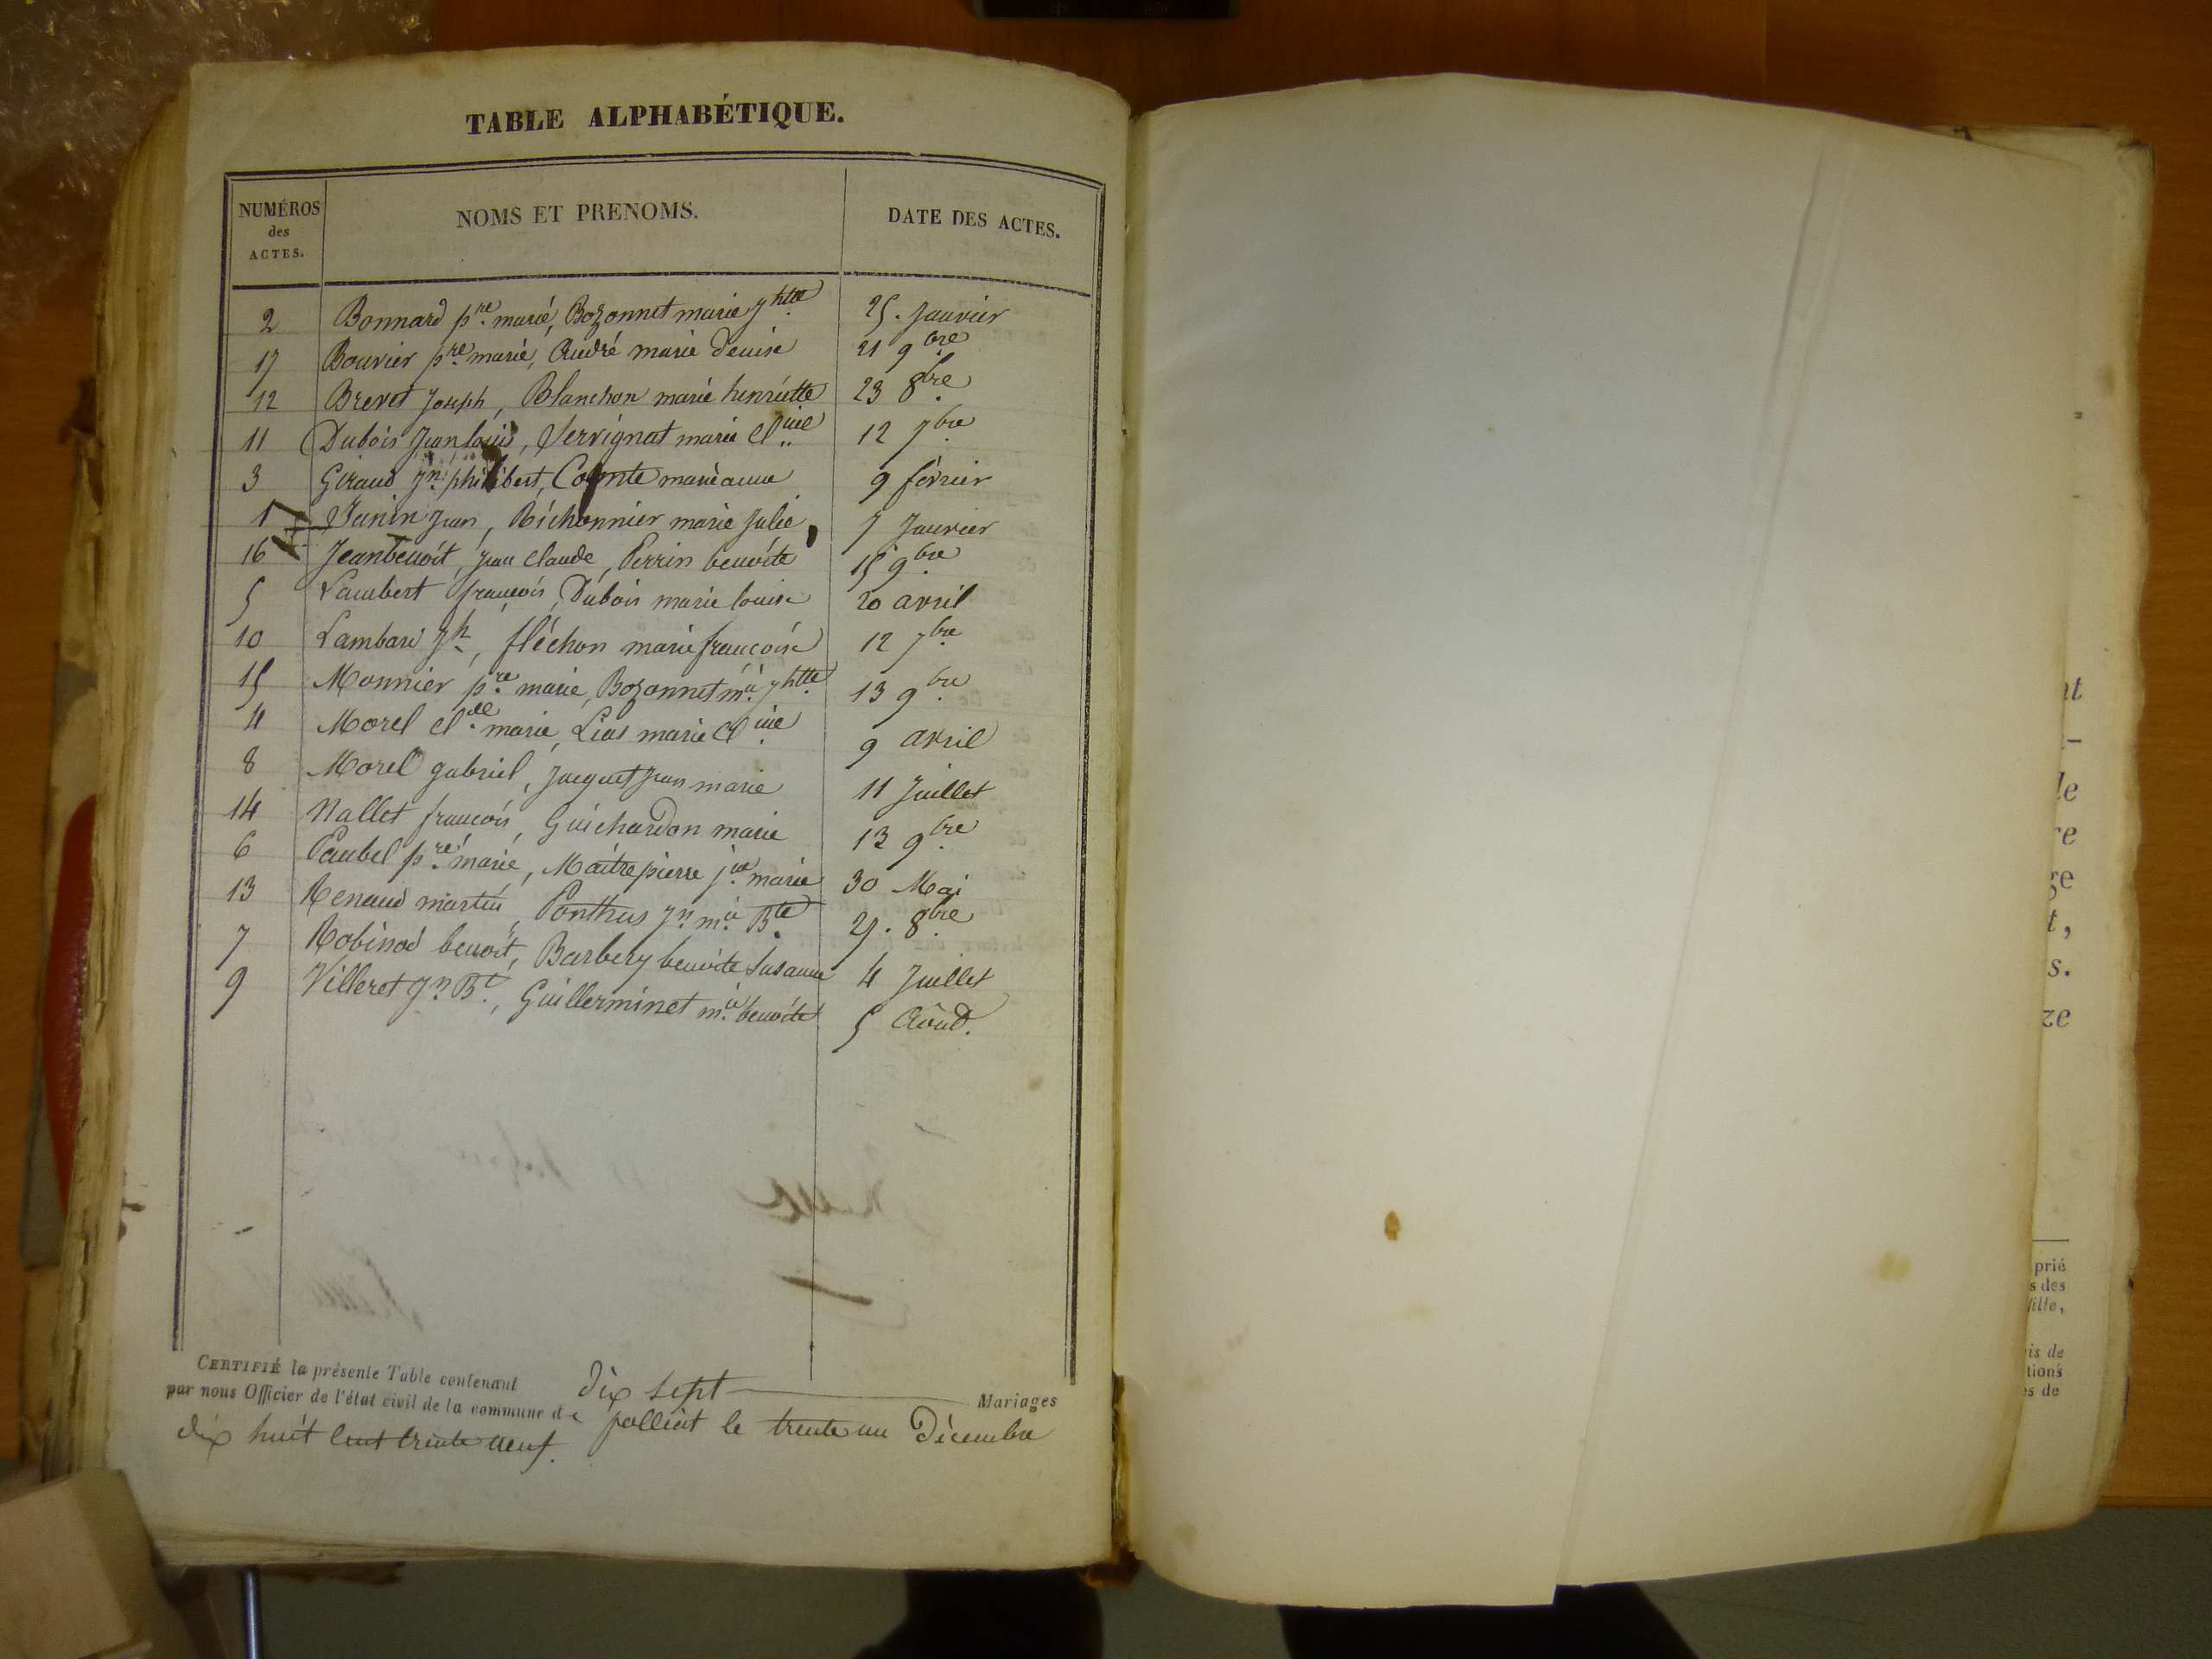 TABLE ALPHABÉTIQUE.
NUMÉROS des ACTES. NOMS ET PRENOMS. DATE DES ACTES.
2 Bonnard pre. marie, Bozonnet marie jhtte. 25. Janvier
17 Bouvier pre. marie, André marie denise 21 9bre.
12 Brevet Joseph, Blanchon marie henriette 23 8bre.
11 Dubois Jean louis, Servignat marie Cl 12 7bre
3 Giraud Jn. philibert, Comte marie anne 9 février
1 Janin Jean, Bichonnier marie Julie, 7 Janvier
16 Jeanbenoit, Jean Claude, Perrin benoite 15 9bre.
5 Lambert françois, Dubois marie louise 20 avril
10 Jh., fléchon marie françoise 12 7bre.
15 Monnier pre. marie, Bozonnet mie. jhtte. 13 9bre.
4 Morel Clde. marie, Lias marie Cl 9 avril
8 Morel gabriel, Jacquet Jean marie 11 Juillet
14 Nallet françois, Guichardon marie 13 9bre.
6 Paubel pre. marie, Maitrepierre jne. marie 30 Mai
13 Renaud martin, Ponthus Jn. mie. Bte. 25. 8bre.
7 Robinod benoit, Barbery benoite Susanne 4 Juillet
9 Villeret Jn. Bt., Guillerminet mie. benoite 5 Août.
CERTIFIÉ la présente Table contenant dix sept Mariages
par nous Officier de l'état civil de la commune de polliat le trente un Décembre
dix huit Cent trente neuf.
nt
le
re
ge
t,
s.
ze
prié
s des
Ville,
is de
tions
es de